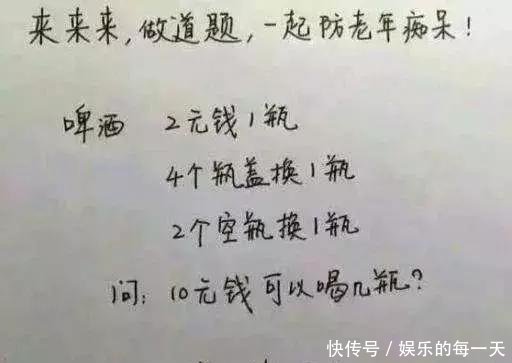 来来来,做道题,一起防老年痴呆!
啤酒 2元钱1瓶
4个瓶盖换1瓶
2个空瓶换1瓶
问:10元钱可以喝几瓶?
快传号/娱乐的每一天